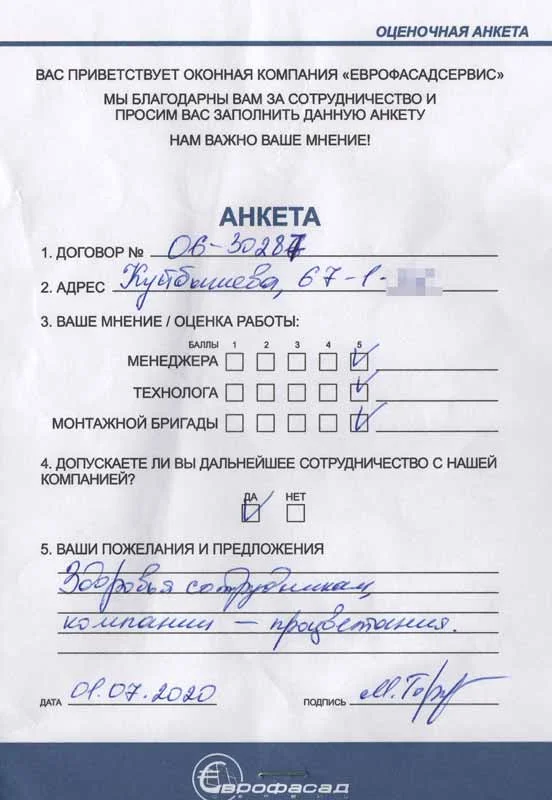 ОЦЕНОЧНАЯ АНКЕТА
ВАС ПРИВЕТСТВУЕТ ОКОННАЯ КОМПАНИЯ «ЕВРОФАСАДСЕРВИС»
МЫ БЛАГОДАРНЫ ВАМ ЗА СОТРУДНИЧЕСТВО И
ПРОСИМ ВАС ЗАПОЛНИТЬ ДАННУЮ АНКЕТУ
НАМ ВАЖНО ВАШЕ МНЕНИЕ!
АНКЕТА
1. ДОГОВОР № 06-30287
2. АДРЕС Куйбышева, 67-1-
3. ВАШЕ МНЕНИЕ / ОЦЕНКА РАБОТЫ:
БАЛЛЫ 1 2 3 4 5
МЕНЕДЖЕРА
ТЕХНОЛОГА
МОНТАЖНОЙ БРИГАДЫ
4. ДОПУСКАЕТЕ ЛИ ВЫ ДАЛЬНЕЙШЕЕ СОТРУДНИЧЕСТВО С НАШЕЙ
КОМПАНИЕЙ?
ДА НЕТ
5. ВАШИ ПОЖЕЛАНИЯ И ПРЕДЛОЖЕНИЯ
Здоровья сотрудникам,
компании – процветания.
ДАТА 01.07.2020 ПОДПИСЬ
Еврофасад